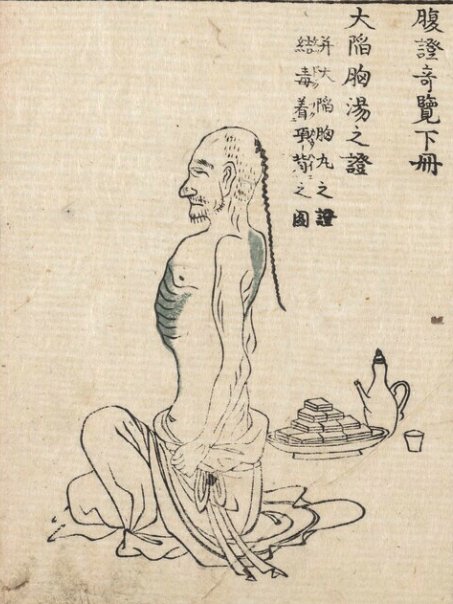 腹證奇覽下冊
大陷胸湯之證
并大陷胸丸之證
結毒着項背之圖